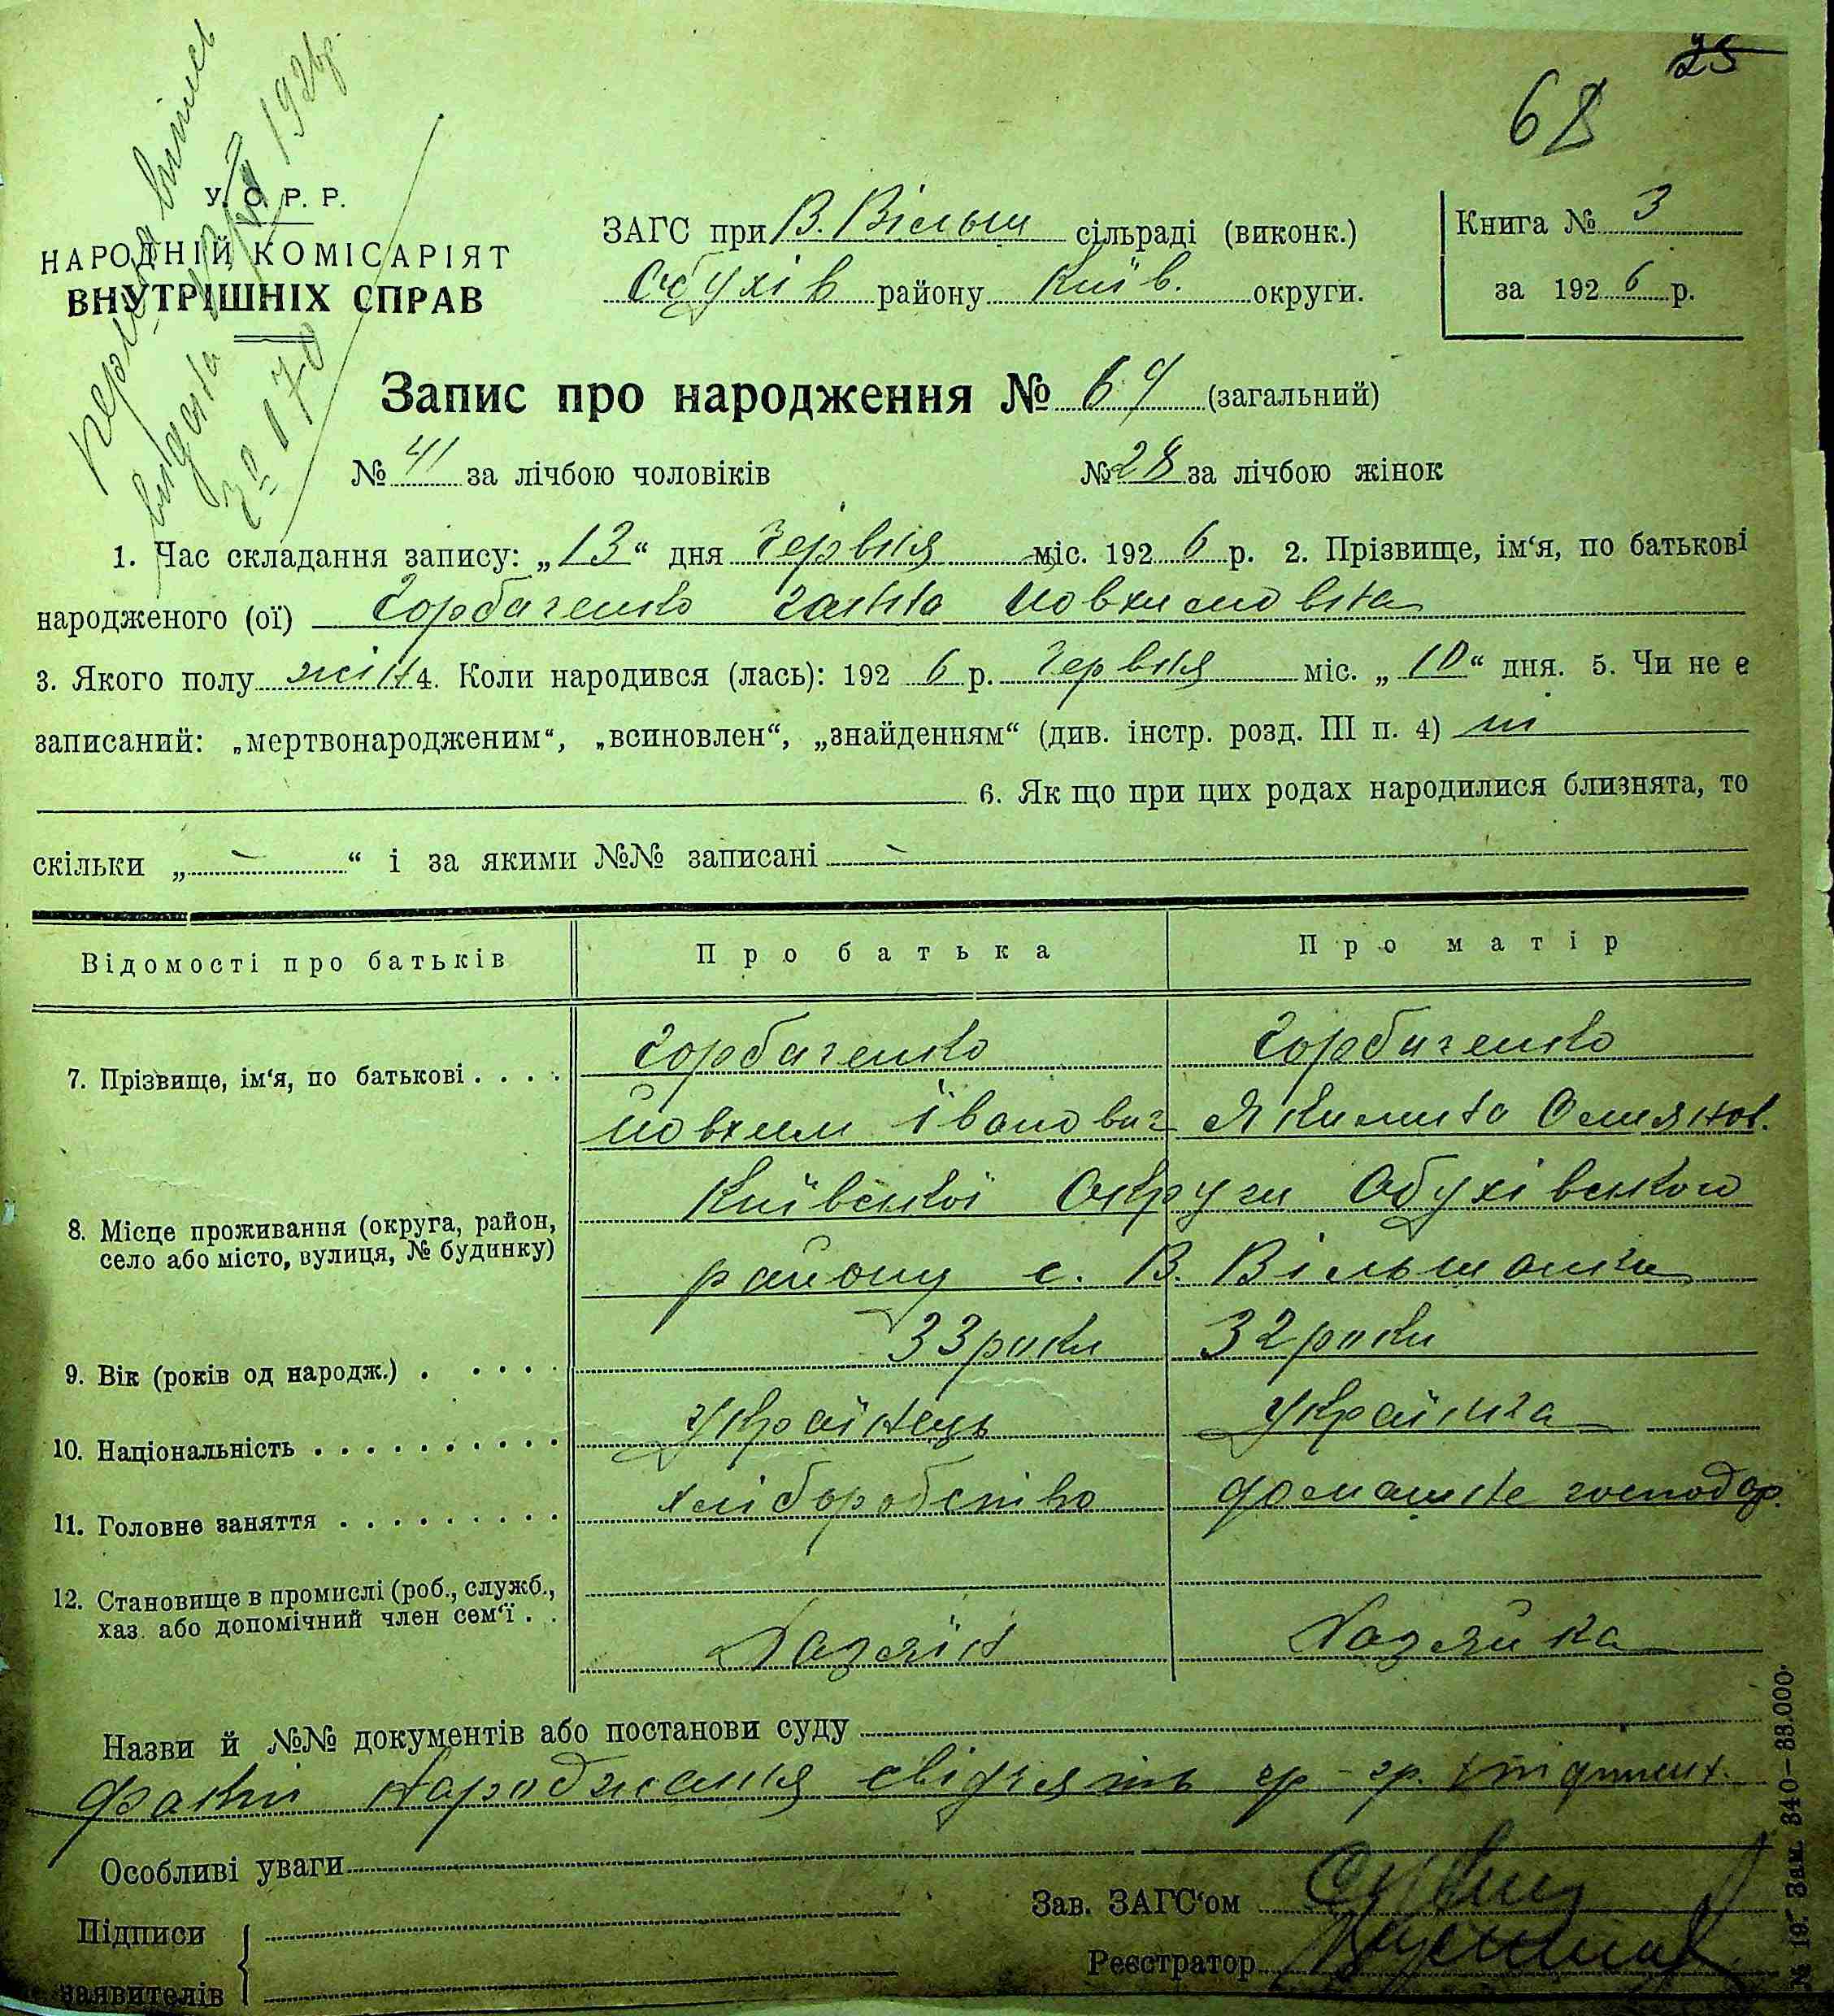 25
68
перша випись
видана 1926 р.
за № 170
У. С. Р. Р.
НАРОДНІЙ КОМІСАРІЯТ
ВНУТРІШНІХ СПРАВ
ЗАГС при В. Вільш сільраді (виконк.)
Обухів району Київ. округи.
Книга № 3
за 1926 р.
Запис про народження № 69 (загальний)
№ 41 за лічбою чоловіків № 28 за лічбою жінок
1. Час складання запису: „13“ дня червня міс. 1926 р. 2. Прізвище, ім‘я, по батькові
народженого (ої) Горбаченко Ганна Йовхимовна
3. Якого полу жін 4. Коли народився (лась): 1926 р. червня міс. „10“ дня. 5. Чи не є
записаний: „мертвонародженим“, „всиновлен“, „знайденням“ (див. інстр. розд. III п. 4) ні
6. Як що при цих родах народилися близнята, то
скільки „—“ і за якими №№ записані —
Відомості про батьків Про батька Про матір
7. Прізвище, ім‘я, по батькові . . . . Горбаченко Горбаченко
Йовхим Іванович Якимина Омелянов.
8. Місце проживання (округа, район, село або місто, вулиця, № будинку) Київської Округи Обухівського
району с. В. Вільшанки
9. Вік (років од народж.) . . . . . 33 роки 32 роки
10. Національність . . . . . . . . . . Українець Українка
11. Головне заняття . . . . . . . . . хліборобство домашнє господар.
12. Становище в промислі (роб., служб.,
хаз. або допомічний член сем‘ї . . Хазяїн Хазяйка
Назви й №№ документів або постанови суду
факт народження свідчать гр-гр.
Особливі уваги
Зав. ЗАГС‘ом
Підписи
заявителів
Реєстратор
№ 19. Зам. 340—33.000.